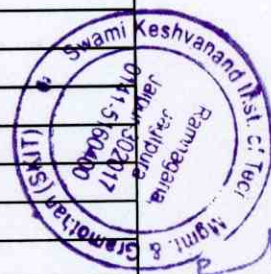 Swami Keshvanand Inst. of Tech. Mgmt. & Gramothan (SKIT)
Ramnagaria,
Jagatpura
Jaipur-302017
0141-5160400